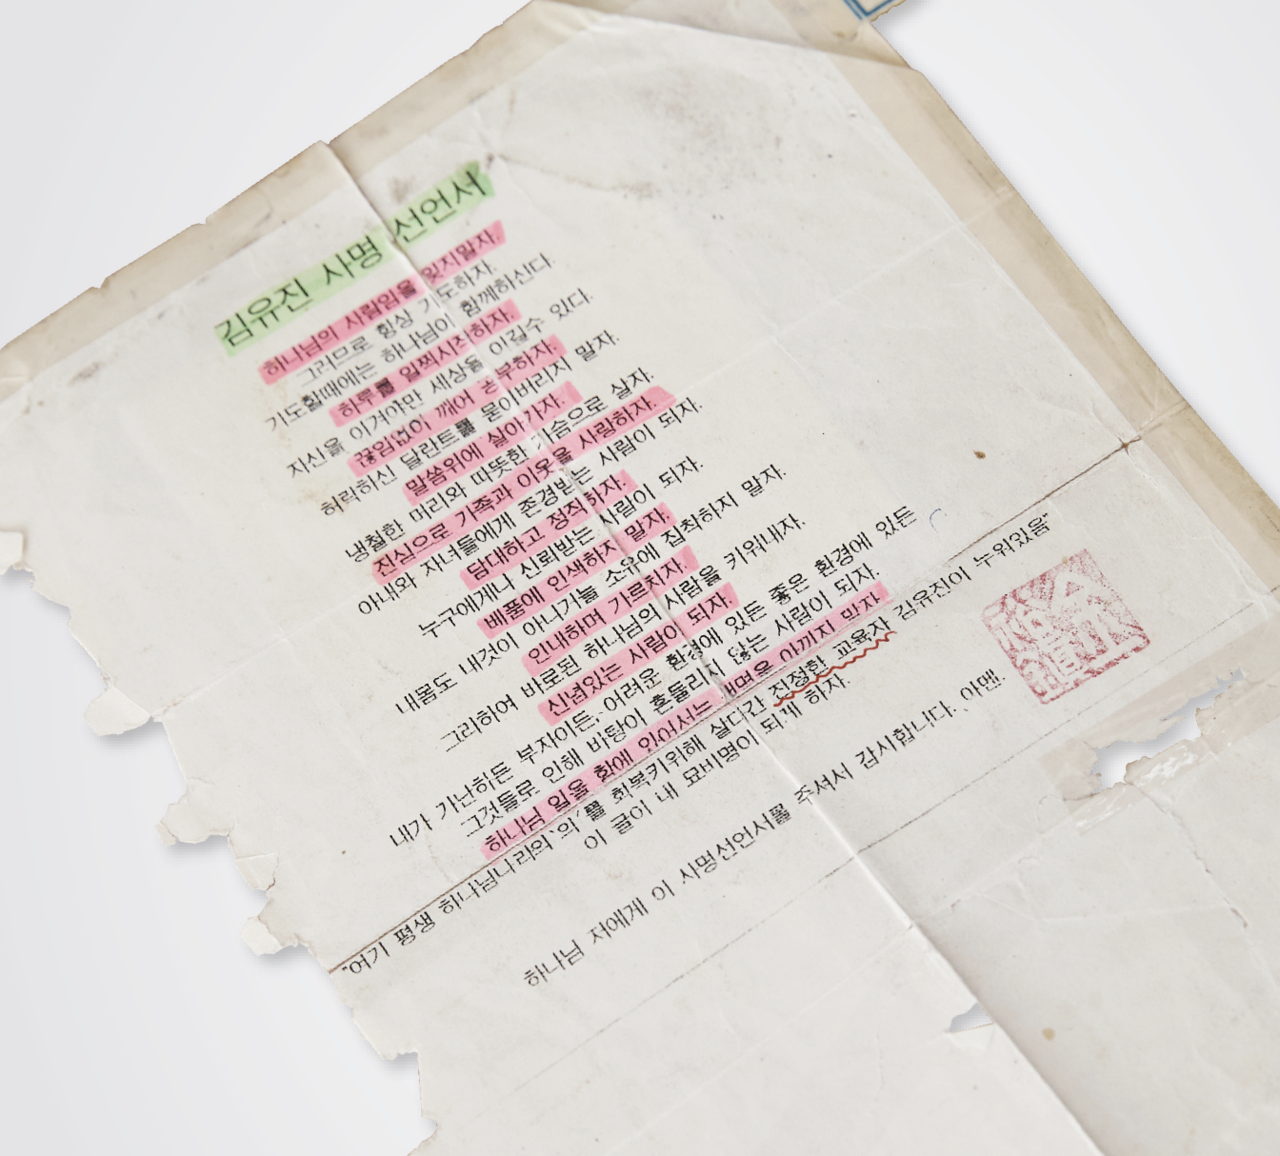 김유진 사명 선언서
하나님의 사람임을 잊지말자.
그러므로 항상 기도하자.
기도할때에는 하나님이 함께하신다.
하루를 일찍시작하자.
자신을 이겨야만 세상을 이길수 있다.
끊임없이 깨어 공부하자.
허락하신 달란트를 묻어버리지 말자.
말씀위에 살아가자.
냉철한 머리와 따뜻한 가슴으로 살자.
진심으로 가족과 이웃을 사랑하자.
아내와 자녀들에게 존경받는 사람이 되자.
담대하고 정직하자.
누구에게나 신뢰받는 사람이 되자.
베품에 인색하지 말자.
내몸도 내것이 아니거늘 소유에 집착하지 말자.
인내하며 가르치자.
그리하여 바로된 하나님의 사람을 키워내자.
신념있는 사람이 되자.
내가 가난하든 부자이든, 어려운 환경에 있든 좋은 환경에 있든
그것들로 인해 바탕이 흔들리지 않는 사람이 되자.
하나님 일을 함에 있어서는 생명을 아끼지 말자.
"여기 평생 하나님나라의 '의'를 회복키위해 살다간 진정한 교육자 김유진이 누워있음"
이 글이 내 묘비명이 되게 하자.
하나님 저에게 이 사명선언서를 주셔서 감사합니다. 아멘.